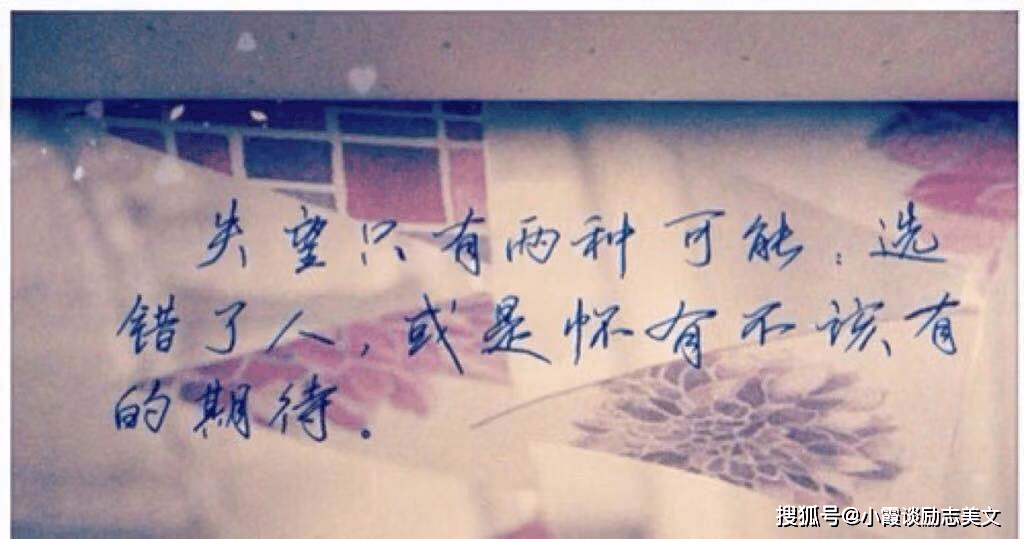 失望只有两种可能：选
错了人，或是怀有不该有
的期待。
搜狐号@小霞谈励志美文